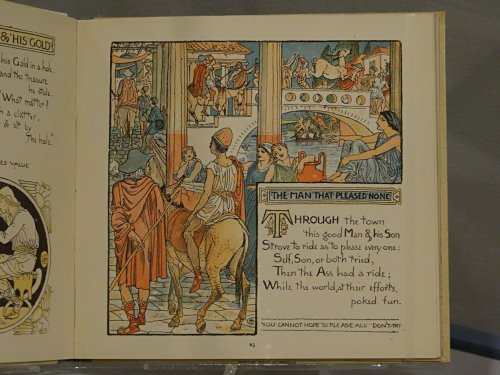 & HIS GOLD
his Gold in a hole,
and the treasure
he stole.
"What matter?
h a clatter,
or sit by
The hole."
ES VALUE
THE MAN THAT PLEASED NONE
THROUGH the town
this good Man & his Son
Strove to ride as to please every one:
Self, Son, or both tried,
Then the Ass had a ride;
While the world, at their efforts,
poked fun.
YOU CANNOT HOPE TO PLEASE ALL DON'T TRY